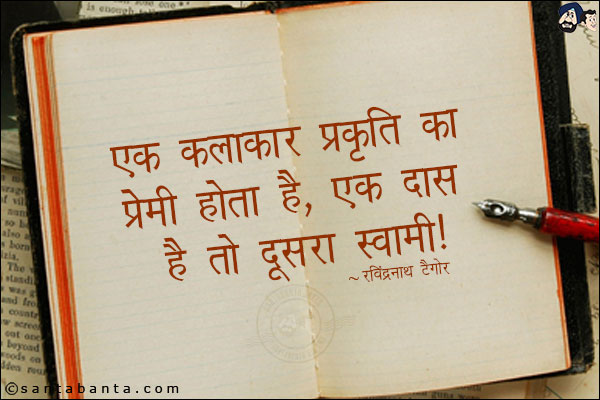 एक कलाकार प्रकृति का
प्रेमी होता है, एक दास
है तो दूसरा स्वामी!
~ रविंद्रनाथ टैगोर
©santabanta.com